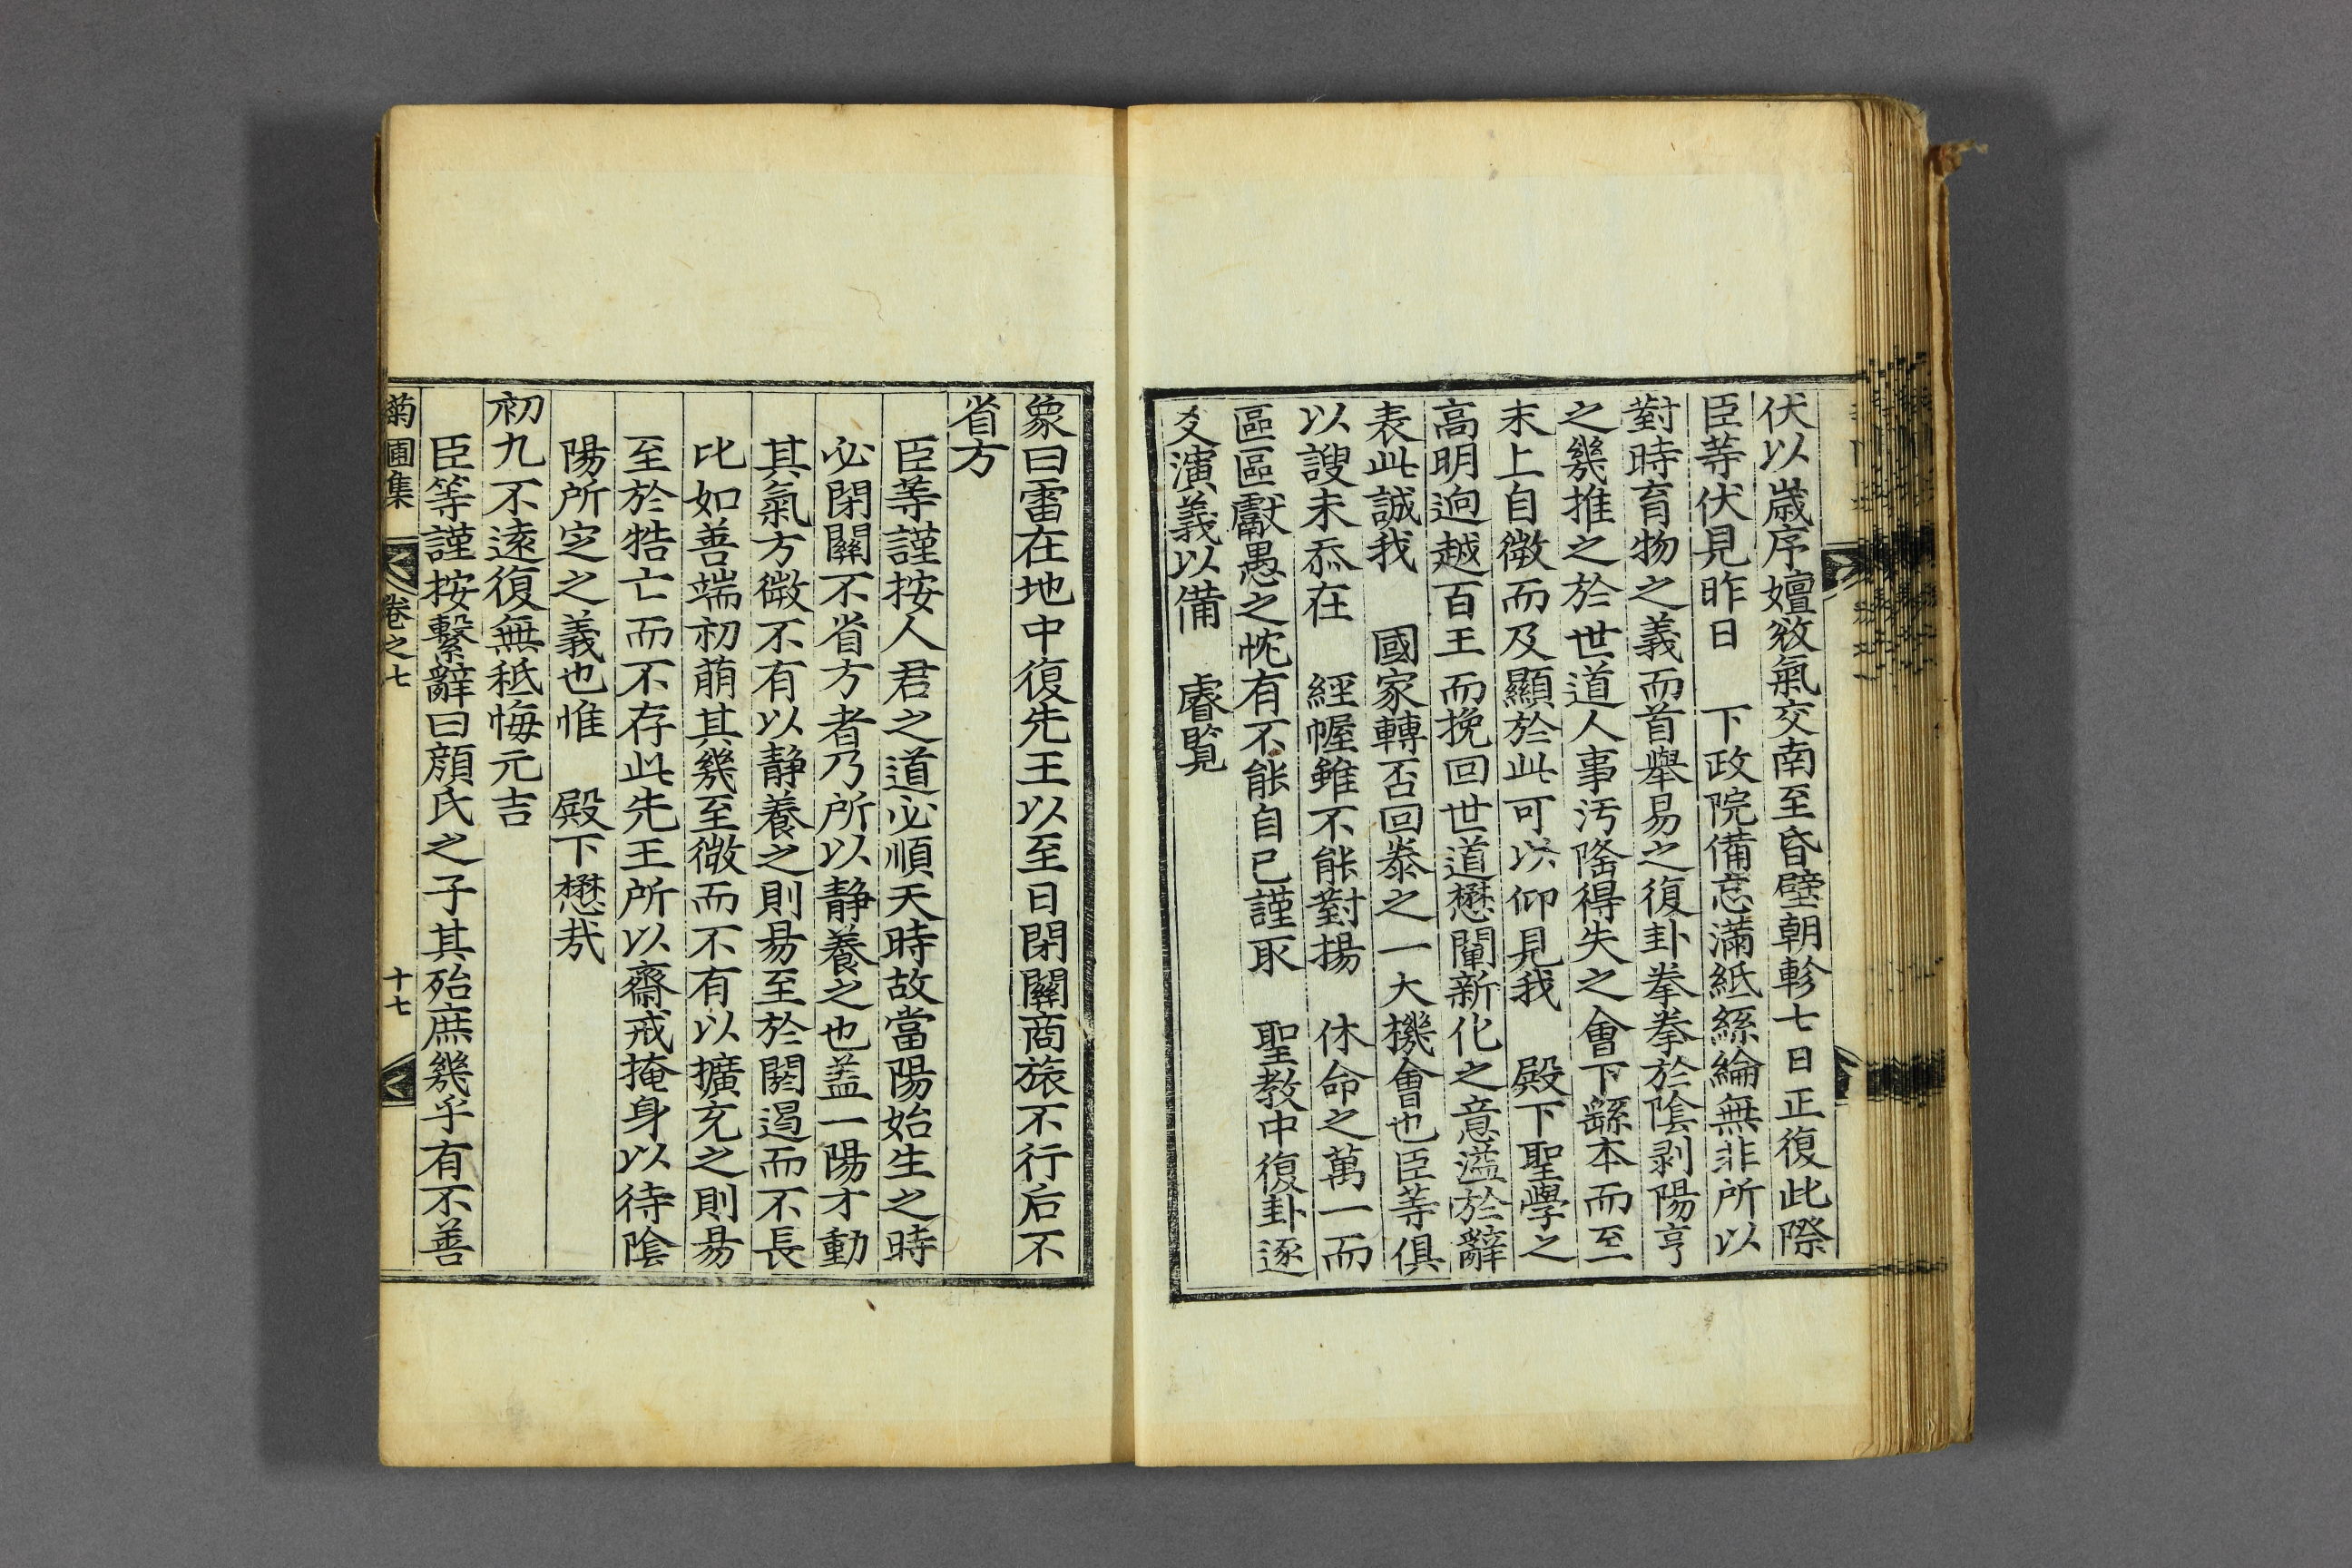 伏以歲序嬗敓氣交南至昏壁朝軫七日正復此際
臣等伏見昨日 下政院備忘滿紙絲綸無非所以
對時育物之義而首舉易之復卦拳拳於陰剥陽亨
之幾推之於世道人事汚隆得失之會下繇本而至
末上自微而及顯於此可以仰見我 殿下聖學之
高明逈越百王而挽回世道懋闡新化之意溢於辭
表此誠我 國家轉否回泰之一大機會也臣等俱
以謏未忝在 經幄雖不能對揚 休命之萬一而
區區獻愚之忱有不能自已謹取 聖教中復卦逐
爻演義以備 睿覧
象曰雷在地中復先王以至日閉關商旅不行后不
省方
臣等謹按人君之道必順天時故當陽始生之時
必閉關不省方者乃所以静養之也盖一陽才動
其氣方微不有以静養之則易至於閼遏而不長
比如善端初萠其幾至微而不有以擴充之則易
至於牿亡而不存此先王所以齋戒掩身以待陰
陽所定之義也惟 殿下懋哉
初九不遠復無秪悔元吉
臣等謹按繫辭曰顔氏之子其殆庶幾乎有不善
菊圃集 卷之七 十七